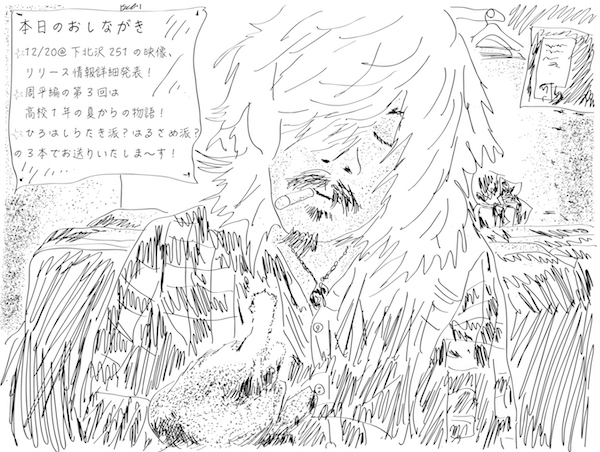 本日のおしながき
☆12/20@下北沢251の映像、
リリース情報詳細発表！
☆周平編の第3回は
高校1年の夏からの物語！
☆ひろはしらたき派？はるさめ派？
の3本でお送りいたしま〜す！